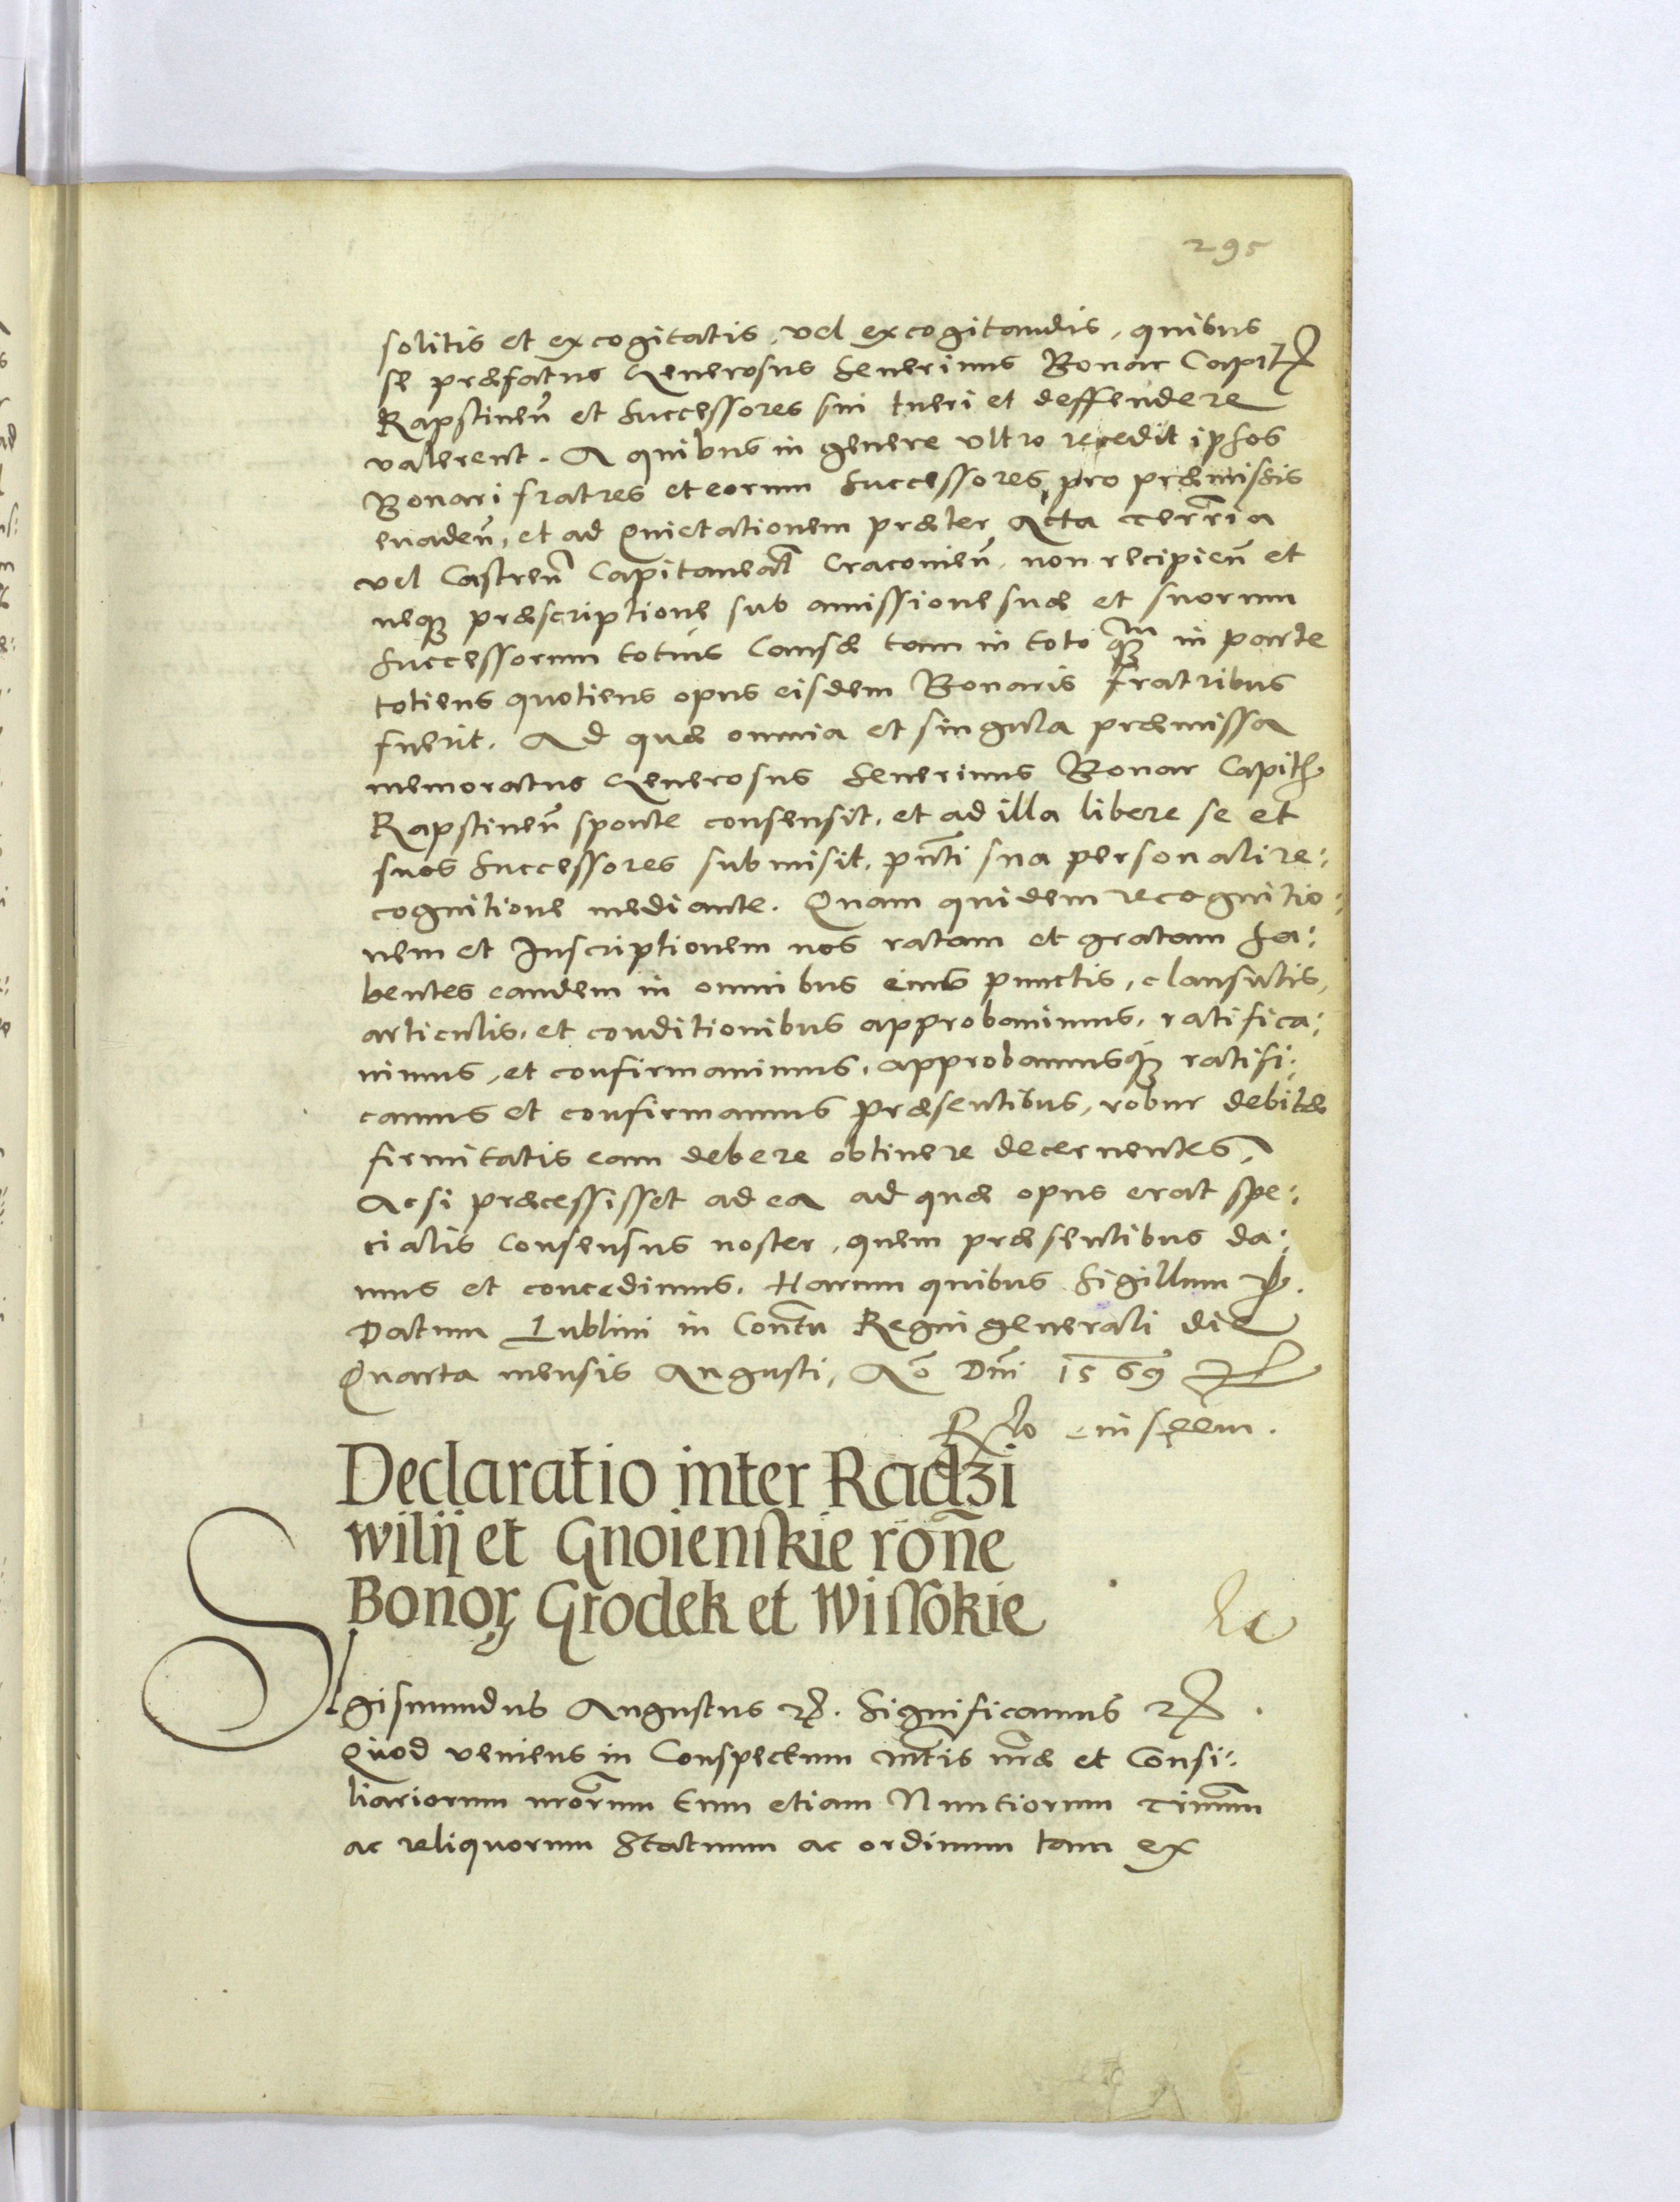 295
solitis et excogitatis, vel excogitandis, quibus
se præfatus Generosus Seuerinus Bonar Capit̃
Rapstineñ et Successores sui tueri et deffendere
valerent. A quibus in genere vltro recedit ipsos
Bonari fratres et eorum Successores pro præmissis
euadeñ, et ad Quietationem præter Acta Terr̃ria
vel Castreñ Capitaneal̃ Cracouieñ, non recipieñ et
neqꝫ præscriptione sub amissione suæ et suorum
Successorum totius Causæ tam in toto qꝫm in parte
totiens quotiens opus eisdem Bonaris fratribus
fuerit. Ad quæ omnia et singula præmissa
memoratus Generosus Seuerinus Bonar Capit̃
Rapstineñ sponte consensit, et ad illa libere se et
suos Successores submisit, pñti sua personali re:
cognitione mediante. Quam quidem recognitio:
nem et Inscriptionem nos ratam et gratam ha:
bentes eandem in omnibus eius punctis, clausulis,
articulis, et conditionibus approbauimus, ratifica:
uimus, et confirmauimus, approbamusqꝫ ratifi:
camus et confirmamus præsentibus, robur debitæ
firmitatis eam debere obtinere decernentes,
Acsi præcessisset ad ea ad quæ opus erat spe:
cialis Consensus noster, quem præsentibus da:
mus et concedimus. Harum quibus Sigillum
Datum Lublini in Conũtu Regni generali die
Quarta mensis Augusti, Aõ Dñi 1569
Rlo eiusdem.
Declaratio inter Radzi
wilij et Gnoienskie rõne
Bonoꝝ Grodek et Wissokie
Sigismundus Augustus ꝛc. Significamus ꝛc.
Quod veniens in Conspectum Mt̃is nr̃æ et Consi:
liariorum nrõrum tum etiam Nuntiorum Tr̃rum
ac reliquorum Statuum ac ordinum tam ex